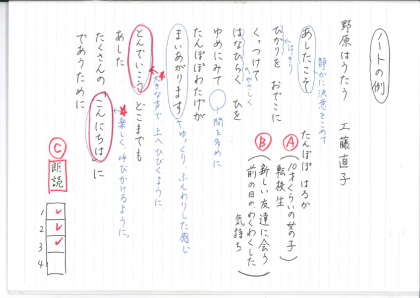 ノートの例
野原はうたう 工藤直子
あしたこそ
たんぽぽ はるか
静かに決意をこめて
Ⓐ(10才くらいの女の子)
転校生
Ⓑ(新しい友達に会う
前の日のわくわくした
気持ち)
ひかりを おでこに
はっきり
くっつけて
はなひらく ひを
やさしく
ゆめにみて
間を多めに
たんぽぽわたげが
まいあがります
ゆっくり ふんわりした感じ
とんでいこう どこまでも
大きな声で 上へひびくように
あした
たくさんの「こんにちは」に
楽しく、呼びかけるように。
であうために
Ⓒ
朗読
1 ✓
2 ✓
3 ✓
4